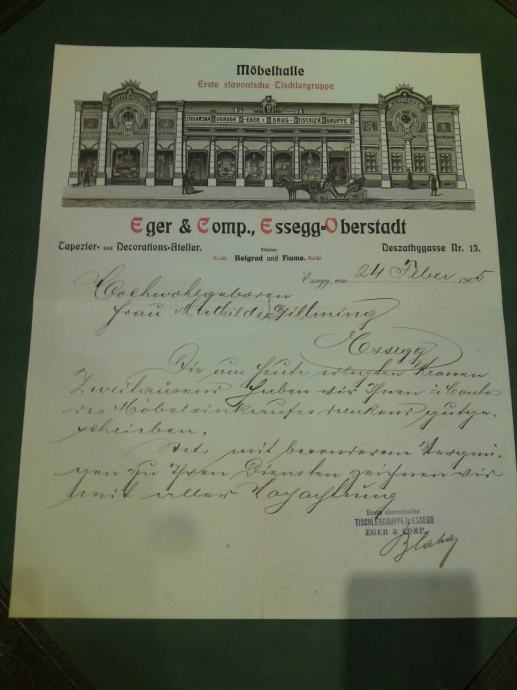 Möbelhalle
Erste slavonische Tischlergruppe
STOLARSKA UDRUGA EGER I DRUG TISCHLER GRUPPE
Eger & Comp., Essegg-Oberstadt
Tapezier- und Decorations-Atelier.
Filialen:
Belgrad und Fiume.
Deszathygasse Nr. 13.
Essegg, am 24 Feber 1905
Hochwohlgeboren
Frau Mathilde
Essegg
Die uns heute erlegten Kronen
Zweitausend haben wir Ihnen à Conto
des Möbeleinkaufes dankend gutge-
schrieben.
Stets mit besonderem Vergnü-
gen zu Ihren Diensten zeichnen wir
mit aller Hochachtung
Erste slavonische
TISCHLERGRUPPE in ESSEGG
EGER & COMP.